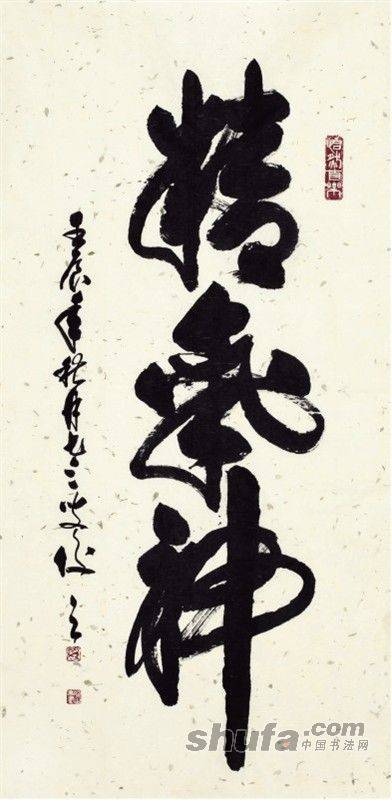 精氣神
壬辰年秋月九三叟侯
shufa.com
中国书法网